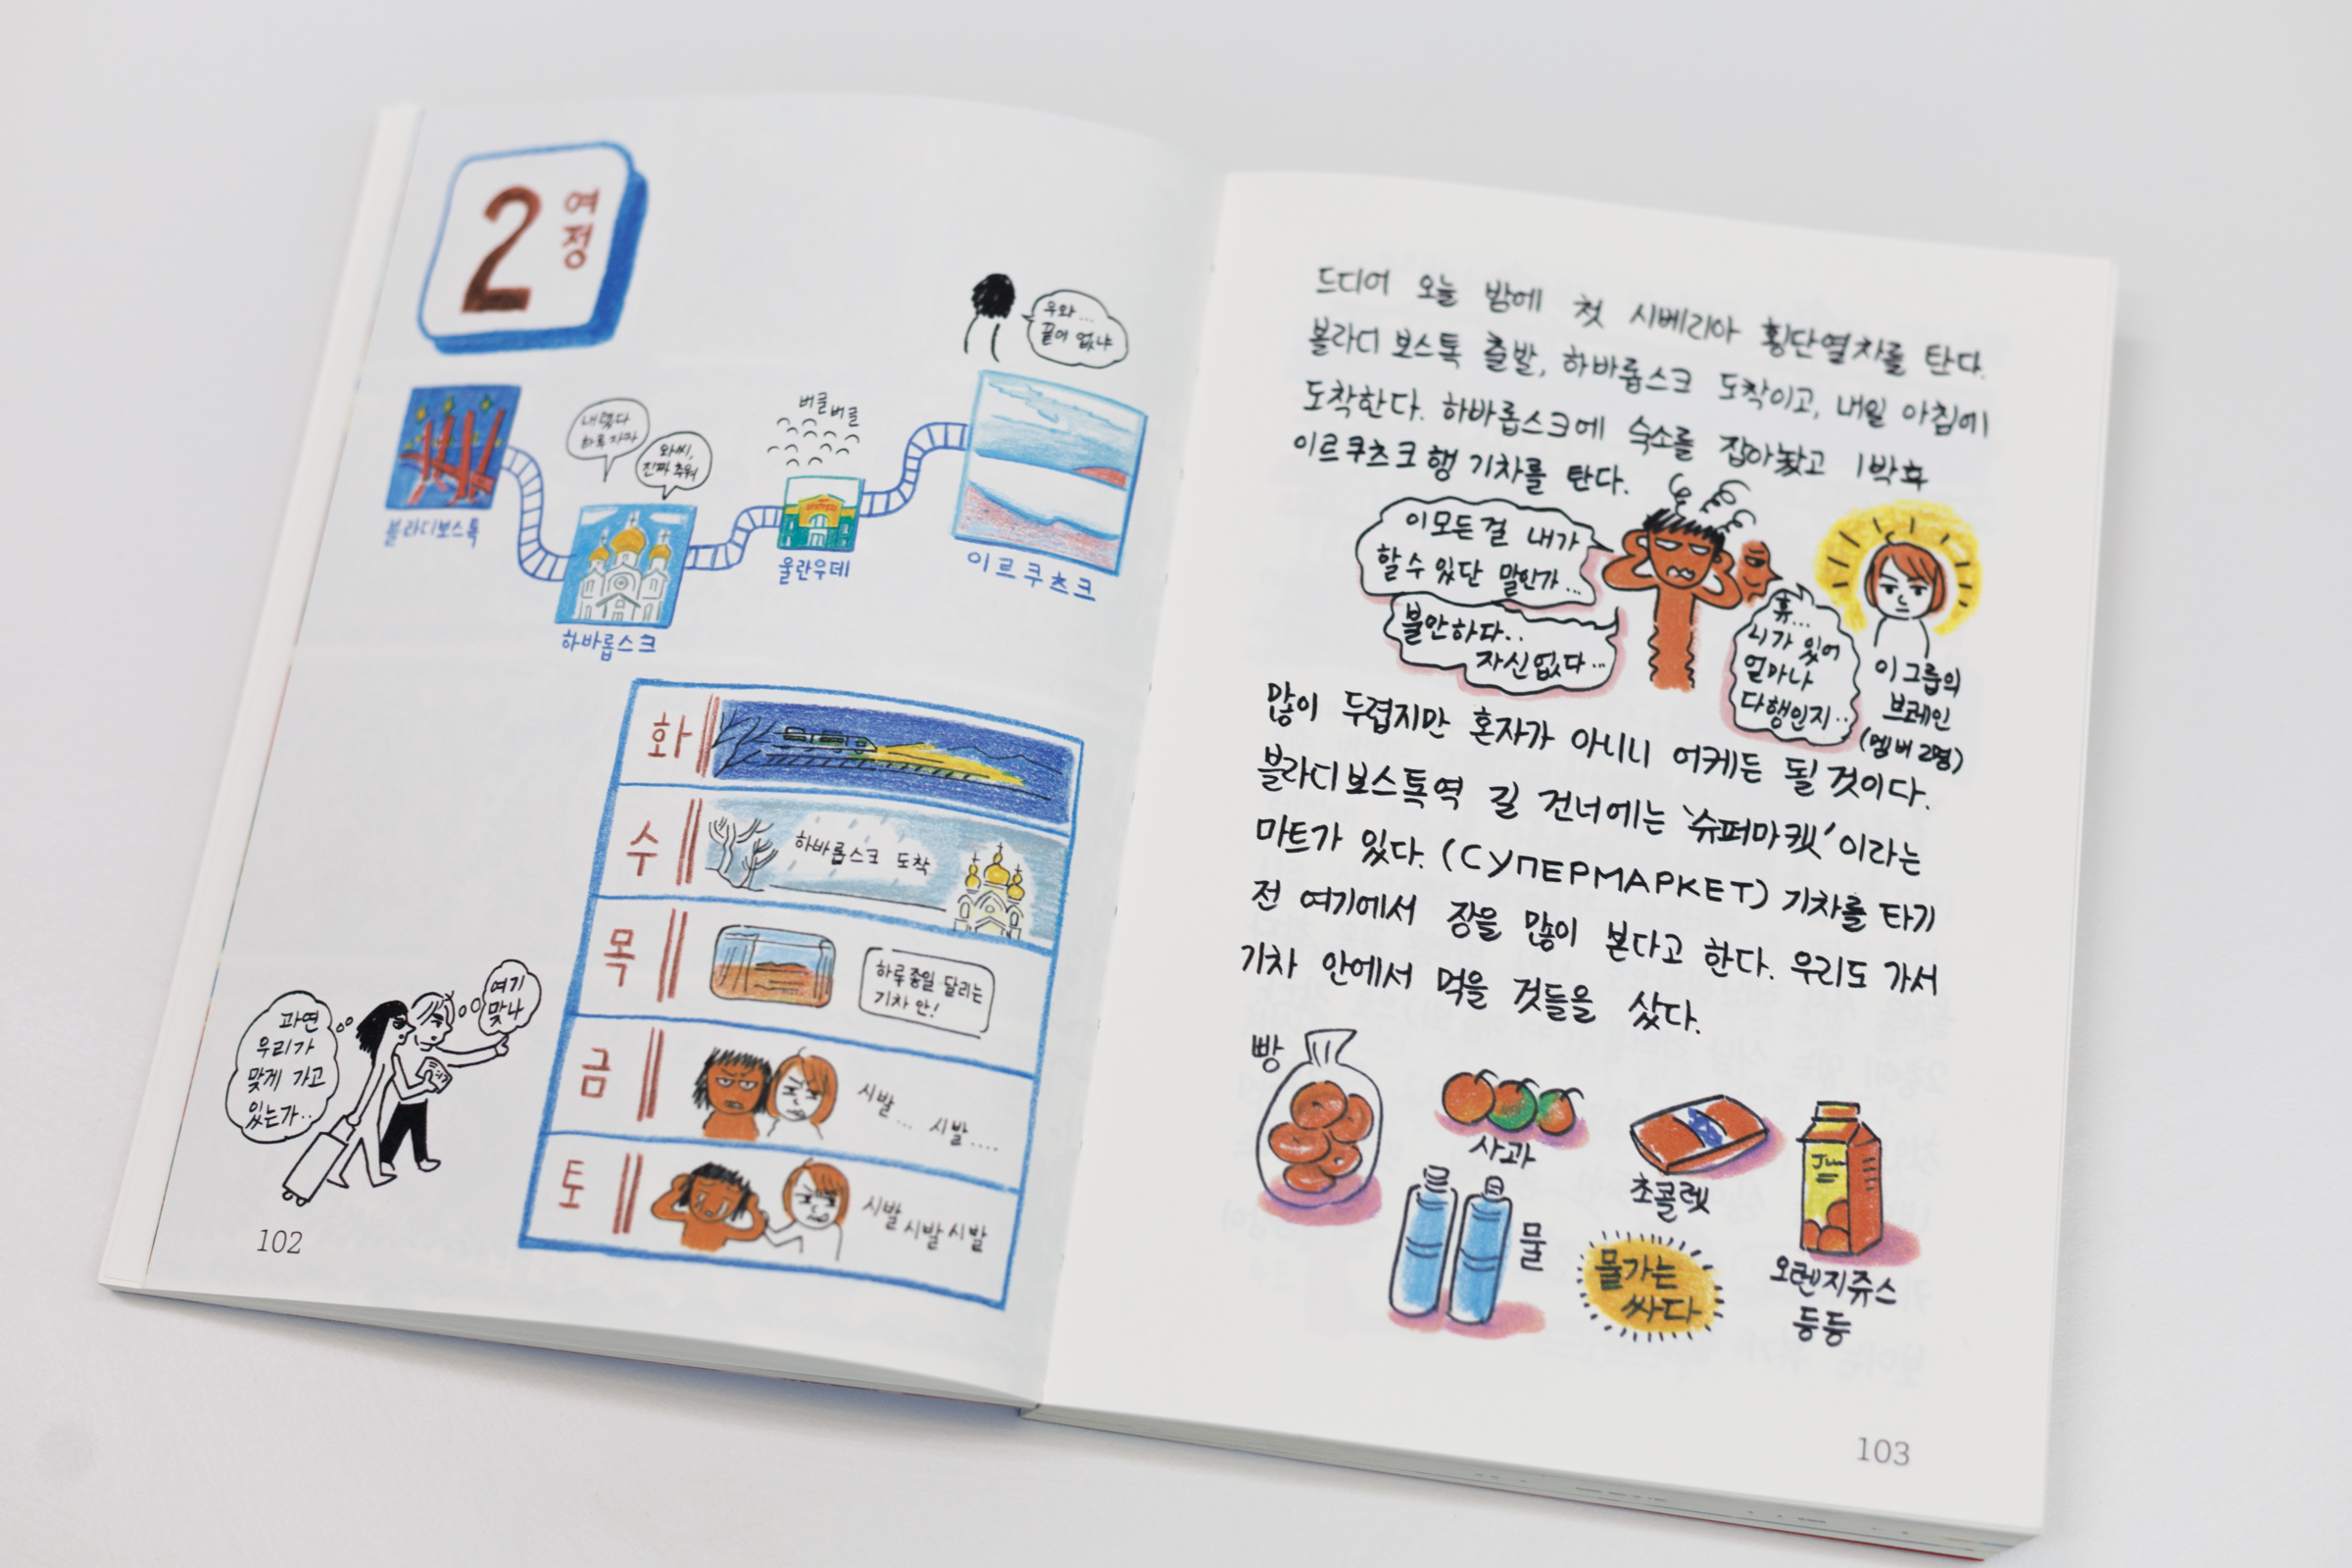 2
여정
우와...
끝이 없냐
내렸다
하루 자자
와씨,
진짜 추워
버글
버글
블라디보스톡
하바롭스크
울란우데
이르쿠츠크
화
수
하바롭스크 도착
목
하루종일 달리는
기차 안!
금
시발... 시발....
토
시발 시발 시발
과연
우리가
맞게 가고
있는가..
여기
맞나
102
드디어 오늘 밤에 첫 시베리아 횡단열차를 탄다.
블라디보스톡 출발, 하바롭스크 도착이고, 내일 아침에
도착한다. 하바롭스크에 숙소를 잡아놨고 1박 후
이르쿠츠크행 기차를 탄다.
이 모든걸 내가
할 수 있단 말인가...
불안하다..
자신없다...
휴...
니가 있어
얼마나
다행인지..
이 그룹의
브레인
(멤버 2명)
많이 두렵지만 혼자가 아니니 어케든 될 것이다.
블라디보스톡역 길 건너에는 '슈퍼마켓'이라는
마트가 있다. (СУПЕРМАРКЕТ) 기차를 타기
전 여기에서 장을 많이 본다고 한다. 우리도 가서
기차 안에서 먹을 것들을 샀다.
빵
사과
초콜렛
물
물가는
싸다
오렌지쥬스
등등
103